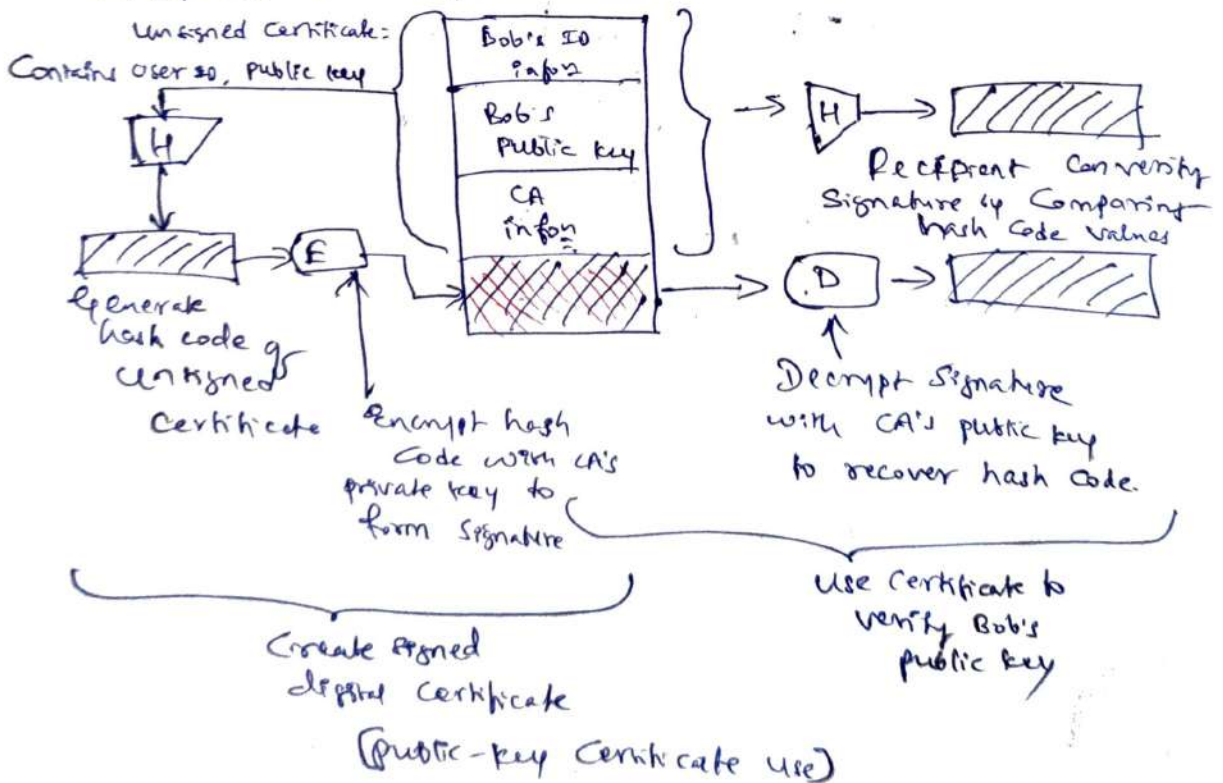 Unsigned Certificate:
Contains User ID, Public key
Bob's ID
infon
Bob's
Public key
CA
infon
H
H
Recipient Can verify
Signature by Comparing
hash Code values
E
D
Generate
hash code of
unsigned
Certificate
Encrypt hash
Code with CA's
private key to
form Signature
Decrypt Signature
with CA's public key
to recover hash Code.
Create signed
digital Certificate
Use Certificate to
verify Bob's
public key
(public-key Certificate use)